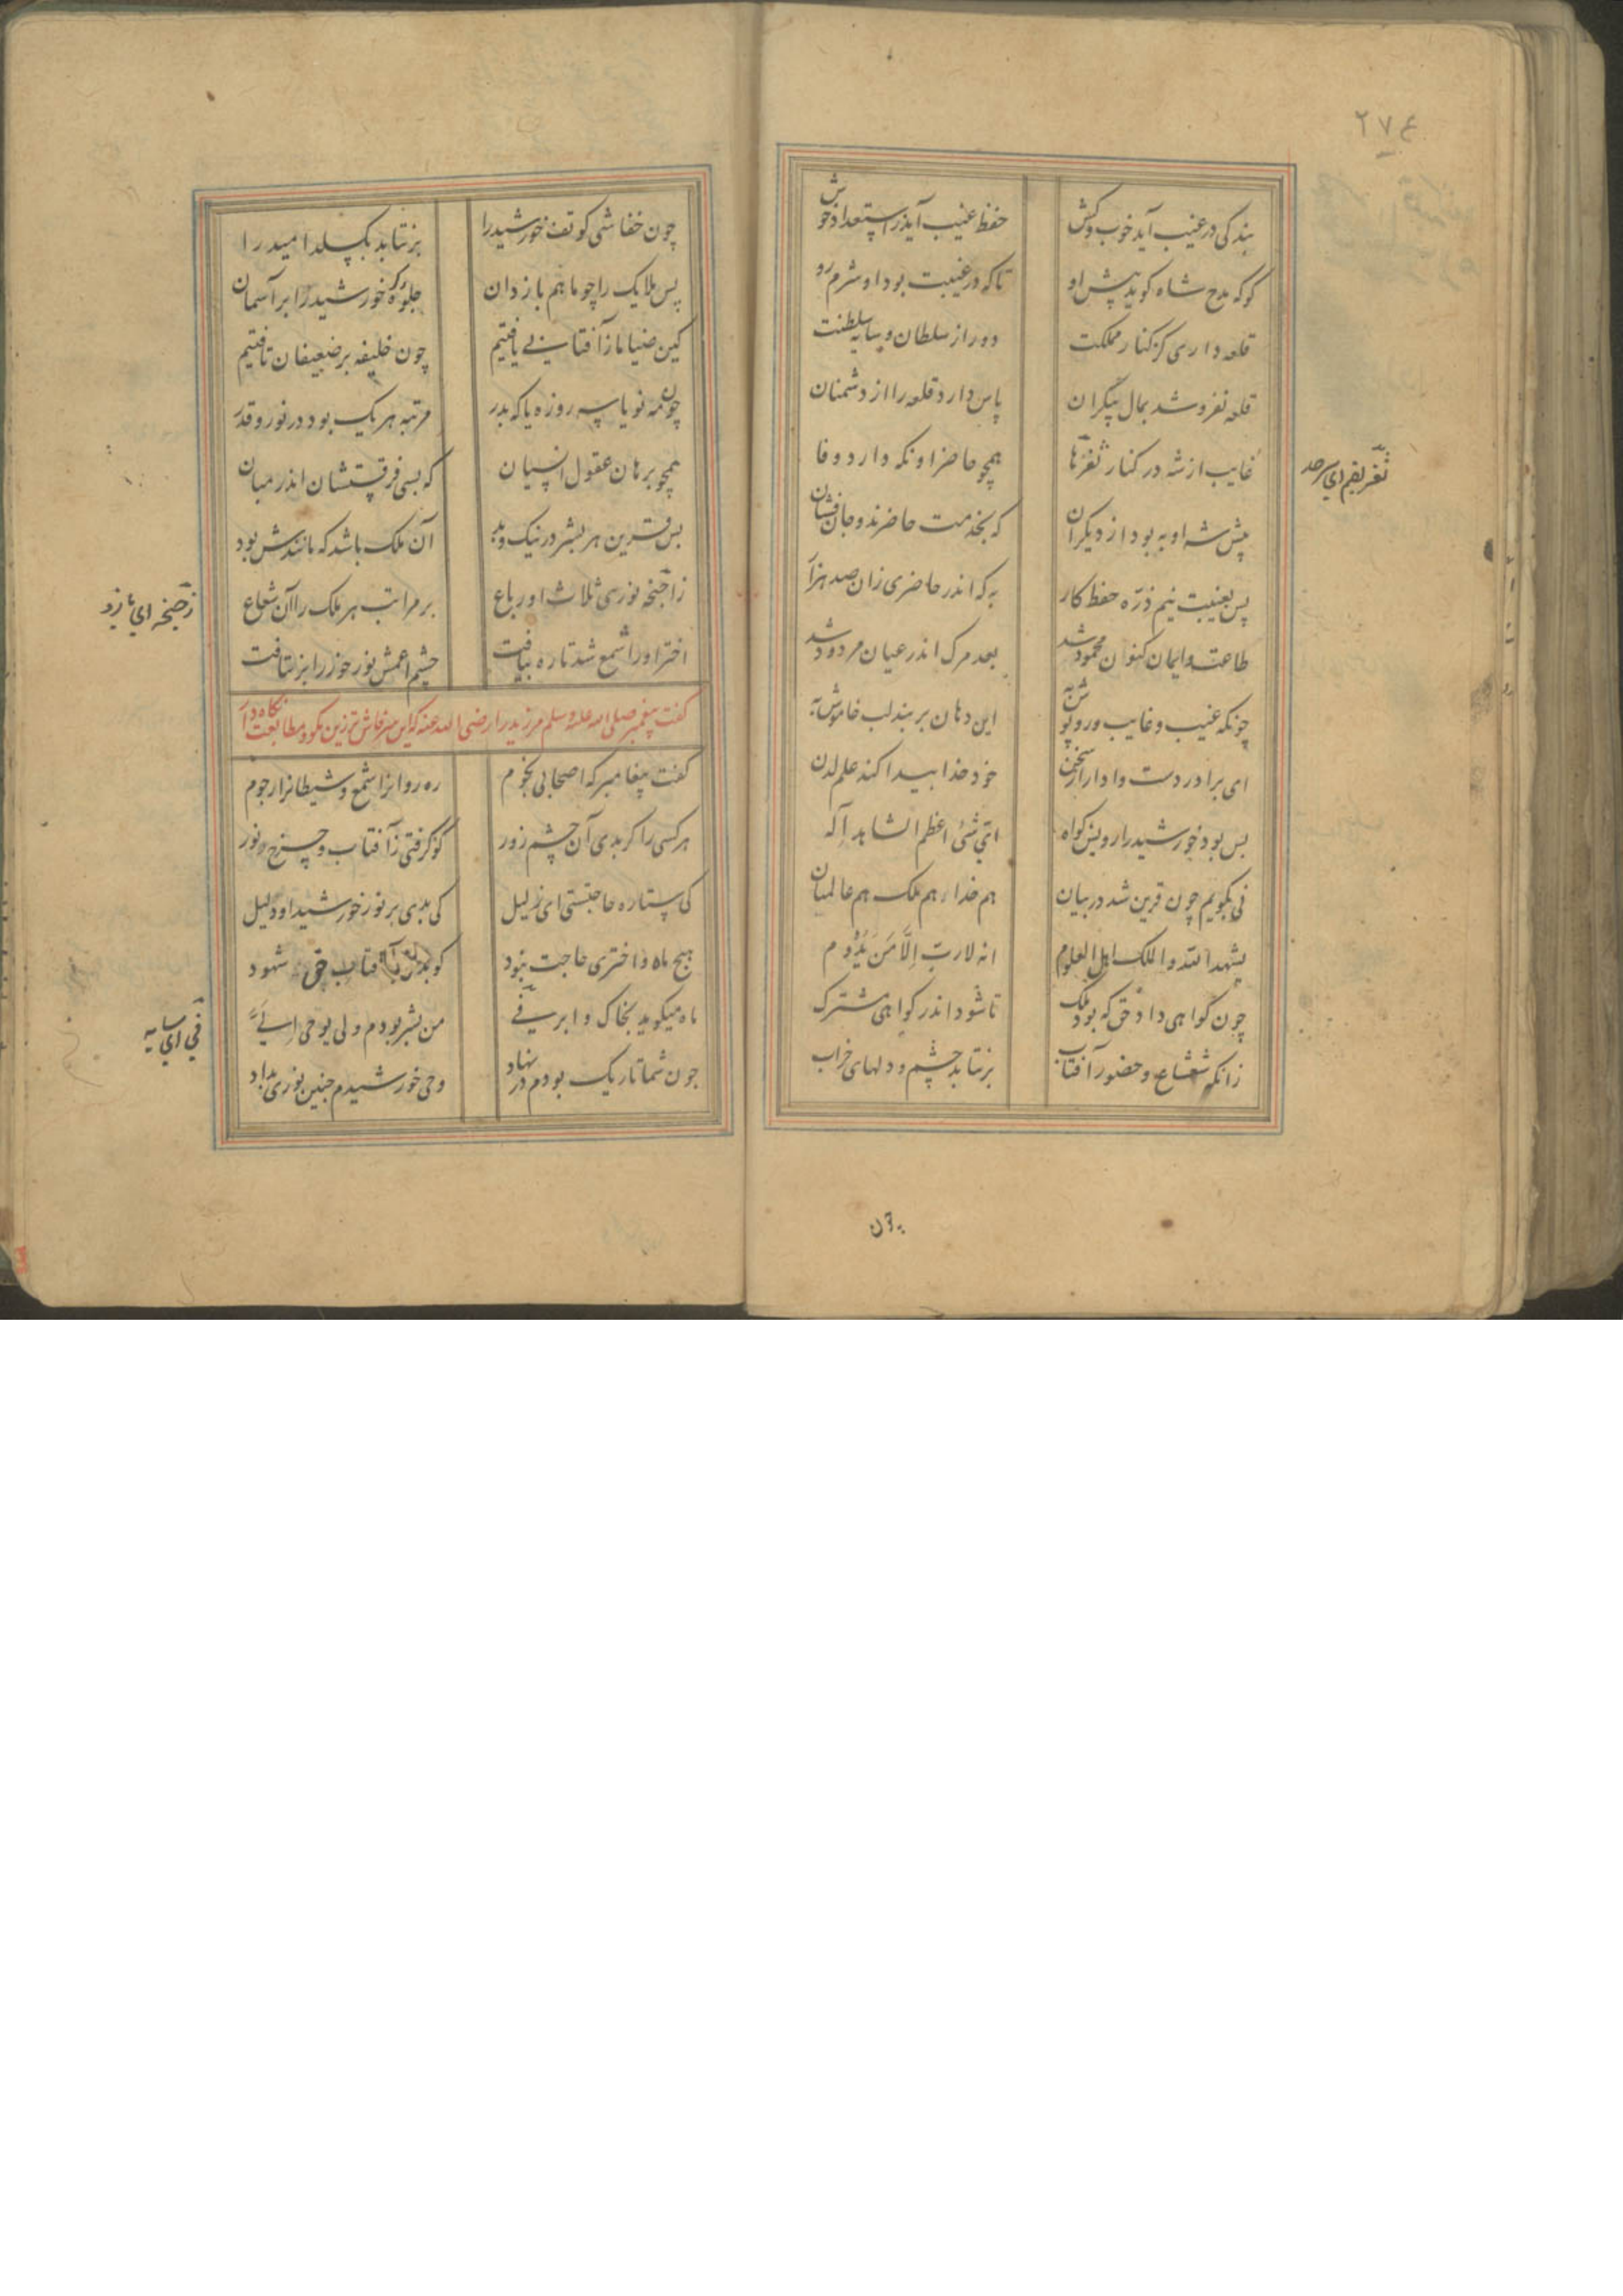 ۲۷۴
بندگی در غیب آید خوب و کش
حفظ غیب آید در استعداد خوش
کو که مدح شاه گوید پیش او
تا که در غیبت بود او شرم رو
قلعه داری کز کنار مملکت
دور از سلطان و سایه سلطنت
پاس دارد قلعه را از دشمنان
قلعه نفروشد بمال بیکران
غایب از شه در کنار ثغرها
همچو حاضر او نگه دارد وفا
ثغر بفم ای سرحد
پیش شه او به بود از دیگران
که بخدمت حاضرند و جان فشان
پس بغیبت نیم ذره حفظ کار
به که اندر حاضری زان صد هزار
طاعت و ایمان کنون محمود شد
بعد مرگ اندر عیان مردود شد
چونکه غیب و غایب و روپوش به
این دهان بربند لب خاموش به
ای برادر دست وادار از سخن
خود خدا پیدا کند علم لدن
بس بود خورشید را رویش گواه
ای شئ اعظم الشاهد اله
نی بگویم چون قرین شد در بیان
هم خدا و هم ملک هم عالمان
یشهد الله والملک اهل العلوم
انه لارب الا من یدوم
چون گواهی داد حق که بود ملک
تا شود اندر گواهی مشترک
زانکه شعشاع و حضور آفتاب
برنتابد چشم و دلهای خراب
چون
چون خفاشی کو تف خورشید را
برنتابد بگسلد امید را
پس ملایک را چو ما هم باز دان
جلوه گر خورشید را بر آسمان
کین ضیا ما زآفتابی یافتیم
چون خلیفه بر ضعیفان تافتیم
چون مه نو یا سه روزه یا که بدر
مرتبه هر یک بود در نور و قدر
همچو پرهای عقول انسیان
که بسی فرقستشان اندر میان
پس قرین هر بشر در نیک و بد
آن ملک باشد که مانندش بود
زاجنحه نوری ثلاث او رباع
بر مراتب هر ملک را آن شعاع
چشم اعمش نور خور را برنتافت
اختر او را شمع شد تا ره بیافت
گفت پیغمبر صلی الله علیه وسلم مر زید را رضی الله عنه که این سر فاش تر زین مگو و متابعت نگاه دار
گفت پیغامبر که اصحابی نجوم
ره روانرا شمع و شیطانرا رجوم
هر کسی را گر بدی آن چشم زور
کو گرفتی زآفتاب چرخ نور
کی ستاره حاجتستی ای ذلیل
کی بدی بر نور خورشید او دلیل
هیچ ماه و اختری حاجت نبود
کو بدی بآفتاب حق شهود
ماه میگوید بخاک و ابر و فی
من بشر بودم ولی یوحی الی
فی ای سایه
چون شما تاریک بودم در نهاد
وحی خورشیدم چنین نوری بداد